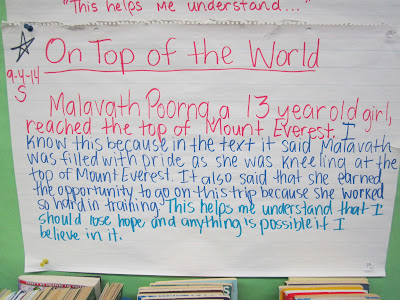 "This helps me understand..."
On Top of the World
9-4-14
S
Malavath Poorna, a 13 year old girl,
reached the top of Mount Everest. I
know this because in the text it said Malavath
was filled with pride as she was kneeling at the
top of Mount Everest. It also said that she earned
the opportunity to go on this trip because she worked
so hard in training. This helps me understand that I
should lose hope and anything is possible if I
believe in it.